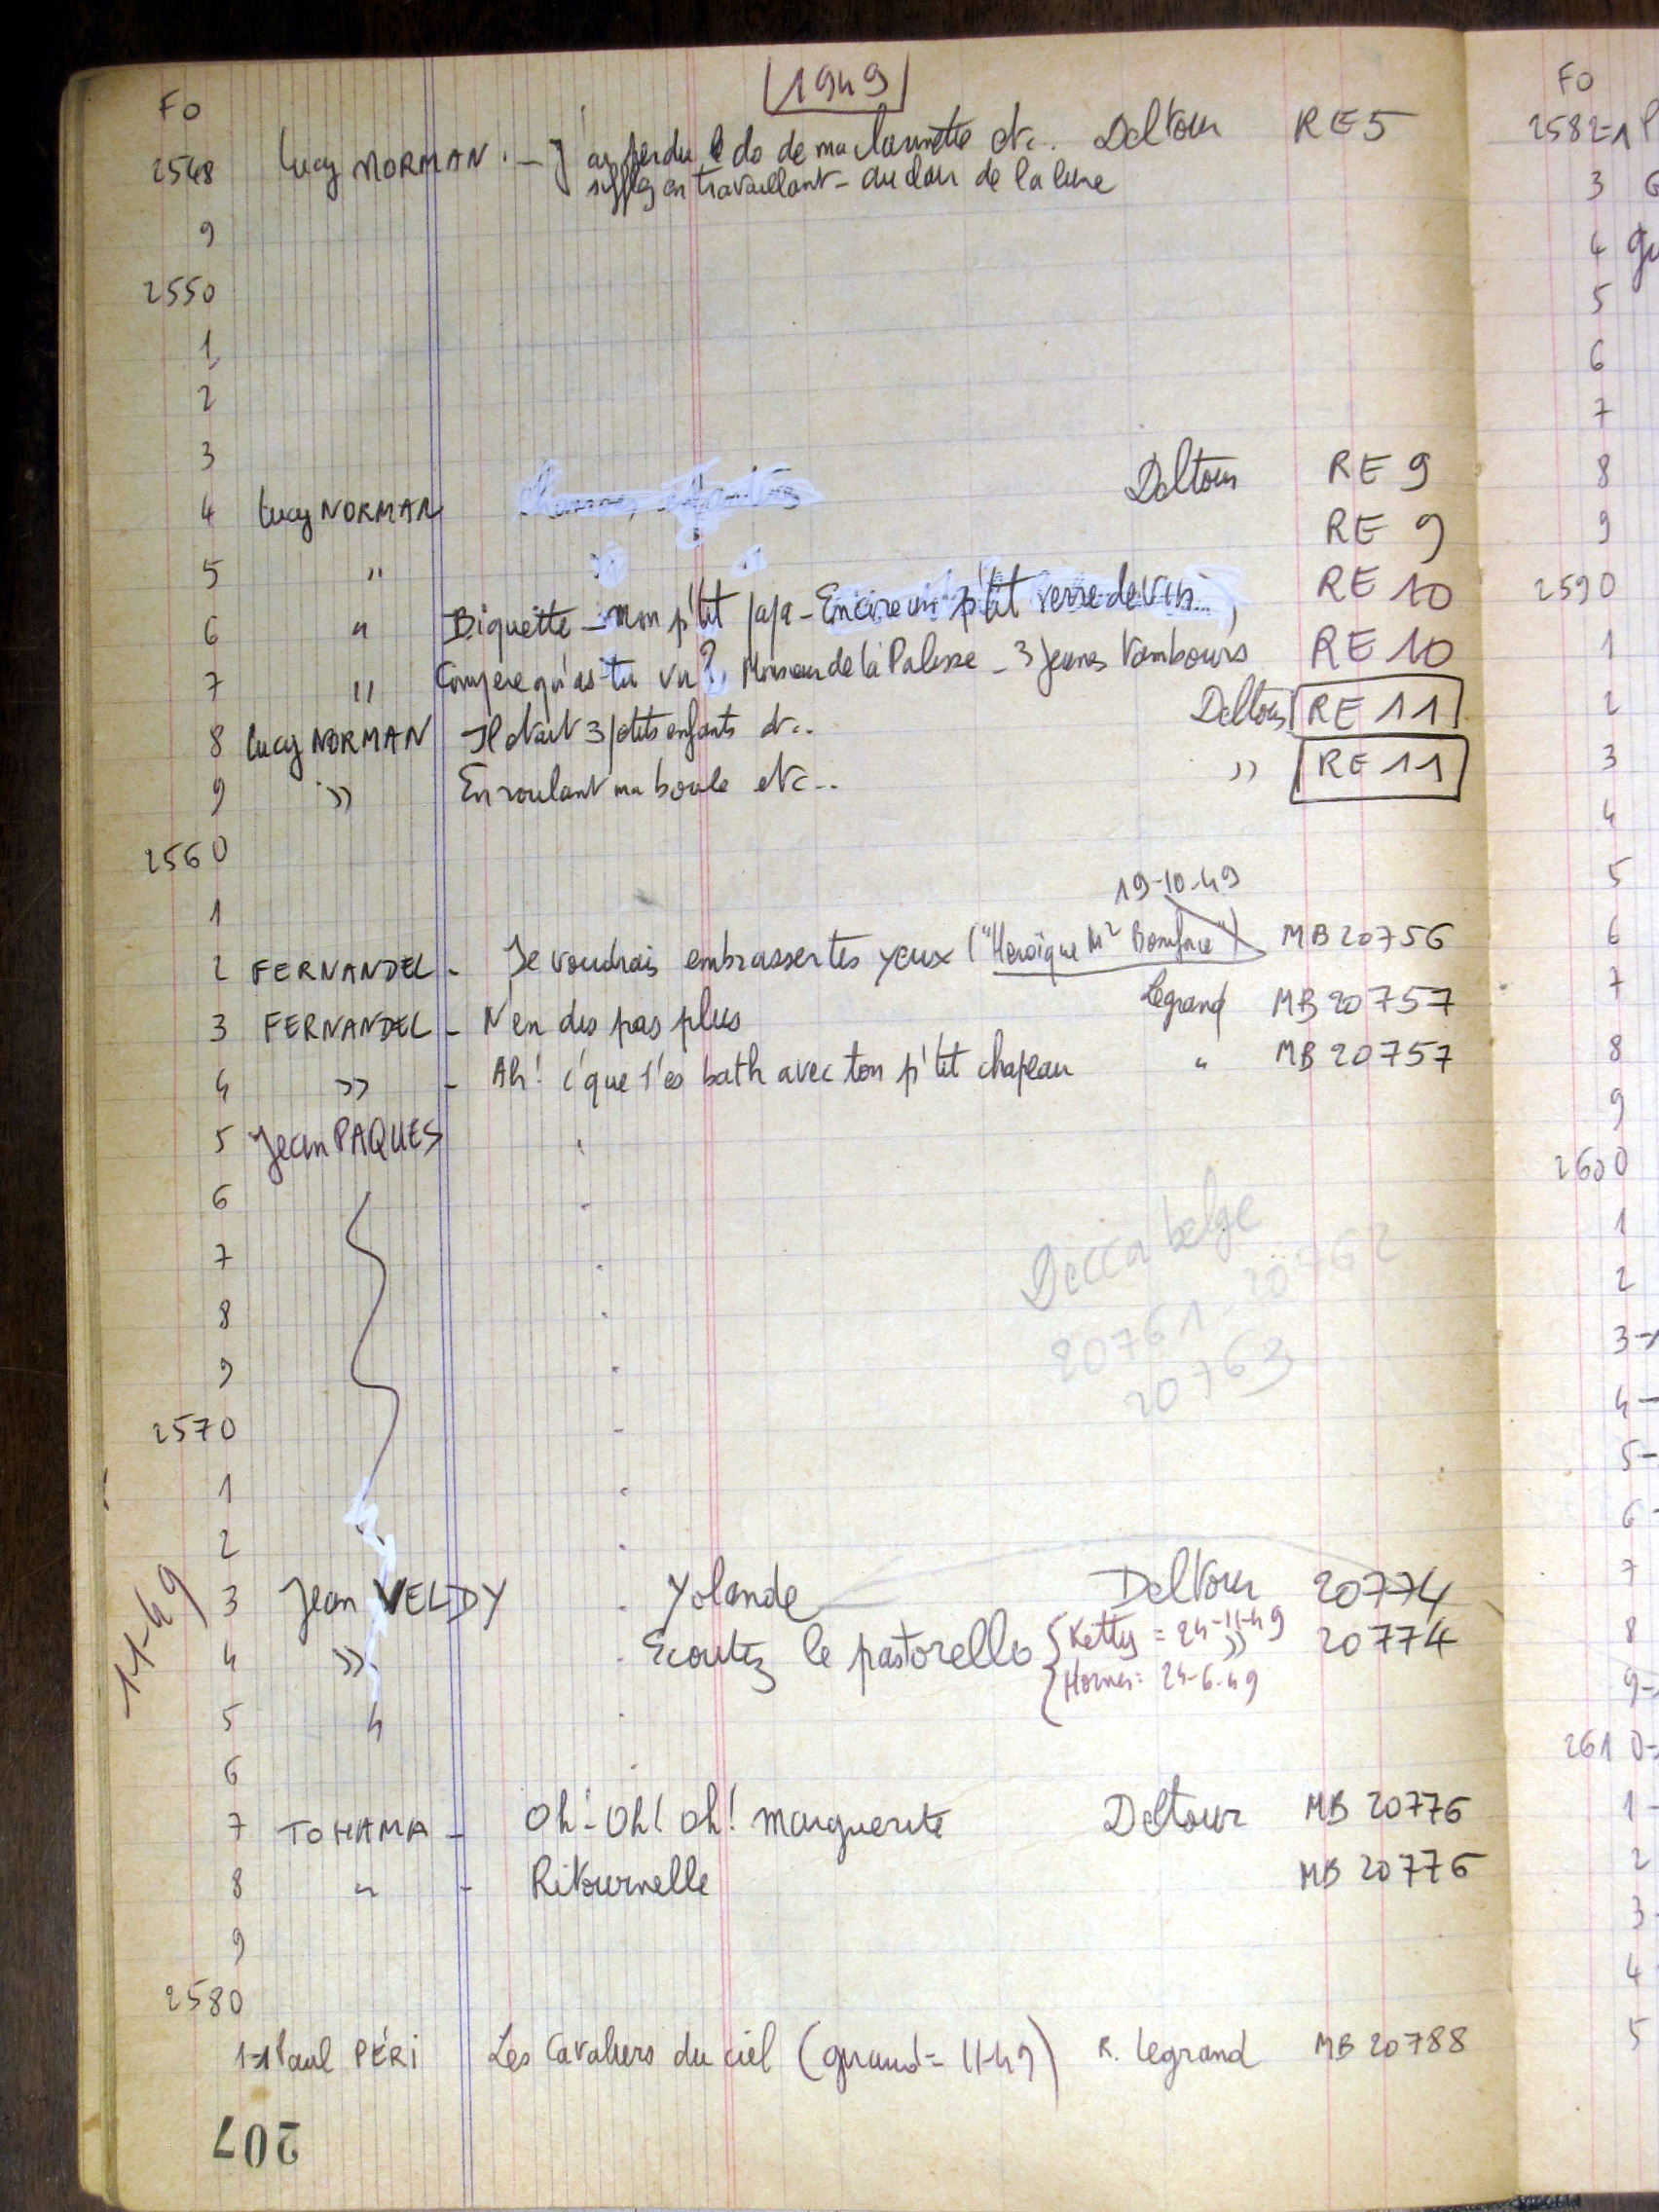 1949
FO
2548 Lucy NORMAN. - J'ai perdu le do de ma clarinette etc.. Deltour RE 5
sifflez en travaillant - au clair de la lune
9
2550
1
2
3
4 Lucy NORMAN Deltour RE 9
5 " RE 9
6 " Biquette - mon p'tit papa - Encore un p'tit verre de vin... RE 10
7 " Compère qu'as-tu vu? Monsieur de la Palisse - 3 Jeunes tambours RE 10
8 Lucy NORMAN Il était 3 petits enfants etc.. Deltour RE 11
9 " En roulant ma boule etc... " RE 11
2560
1
19-10-49
2 FERNANDEL - Je voudrais embrasser tes yeux ("Héroïque Mr Boniface") MB 20756
3 FERNANDEL - N'en dis pas plus Legrand MB 20757
4 " - Ah! c'que t'es bath avec ton p'tit chapeau " MB 20757
5 Jean PAQUES
6
7
8
9
Decca belge
20761 - 20762
20763
2570
1
2
11-49
3 Jean VELDY Yolande Deltour 20774
4 " Ecoutez le pastorello { Ketty = 24-11-49 " 20774
Hornez: 24-6-49
5 "
6
7 TOHAMA - Oh! Oh! Oh! Marguerite Deltour MB 20776
8 " - Ritournelle MB 20776
9
2580
1-1 Paul PÉRI Les Cavaliers du ciel (giraud = 11-49) R. Legrand MB 20788
207
FO
2582-1 P
3 G
4
5
6
7
8
9
2590
1
2
3
4
5
6
7
8
9
2600
1
2
3-
4-
5-
6-
7
8
9-
2610-
1-
2
3-
4
5